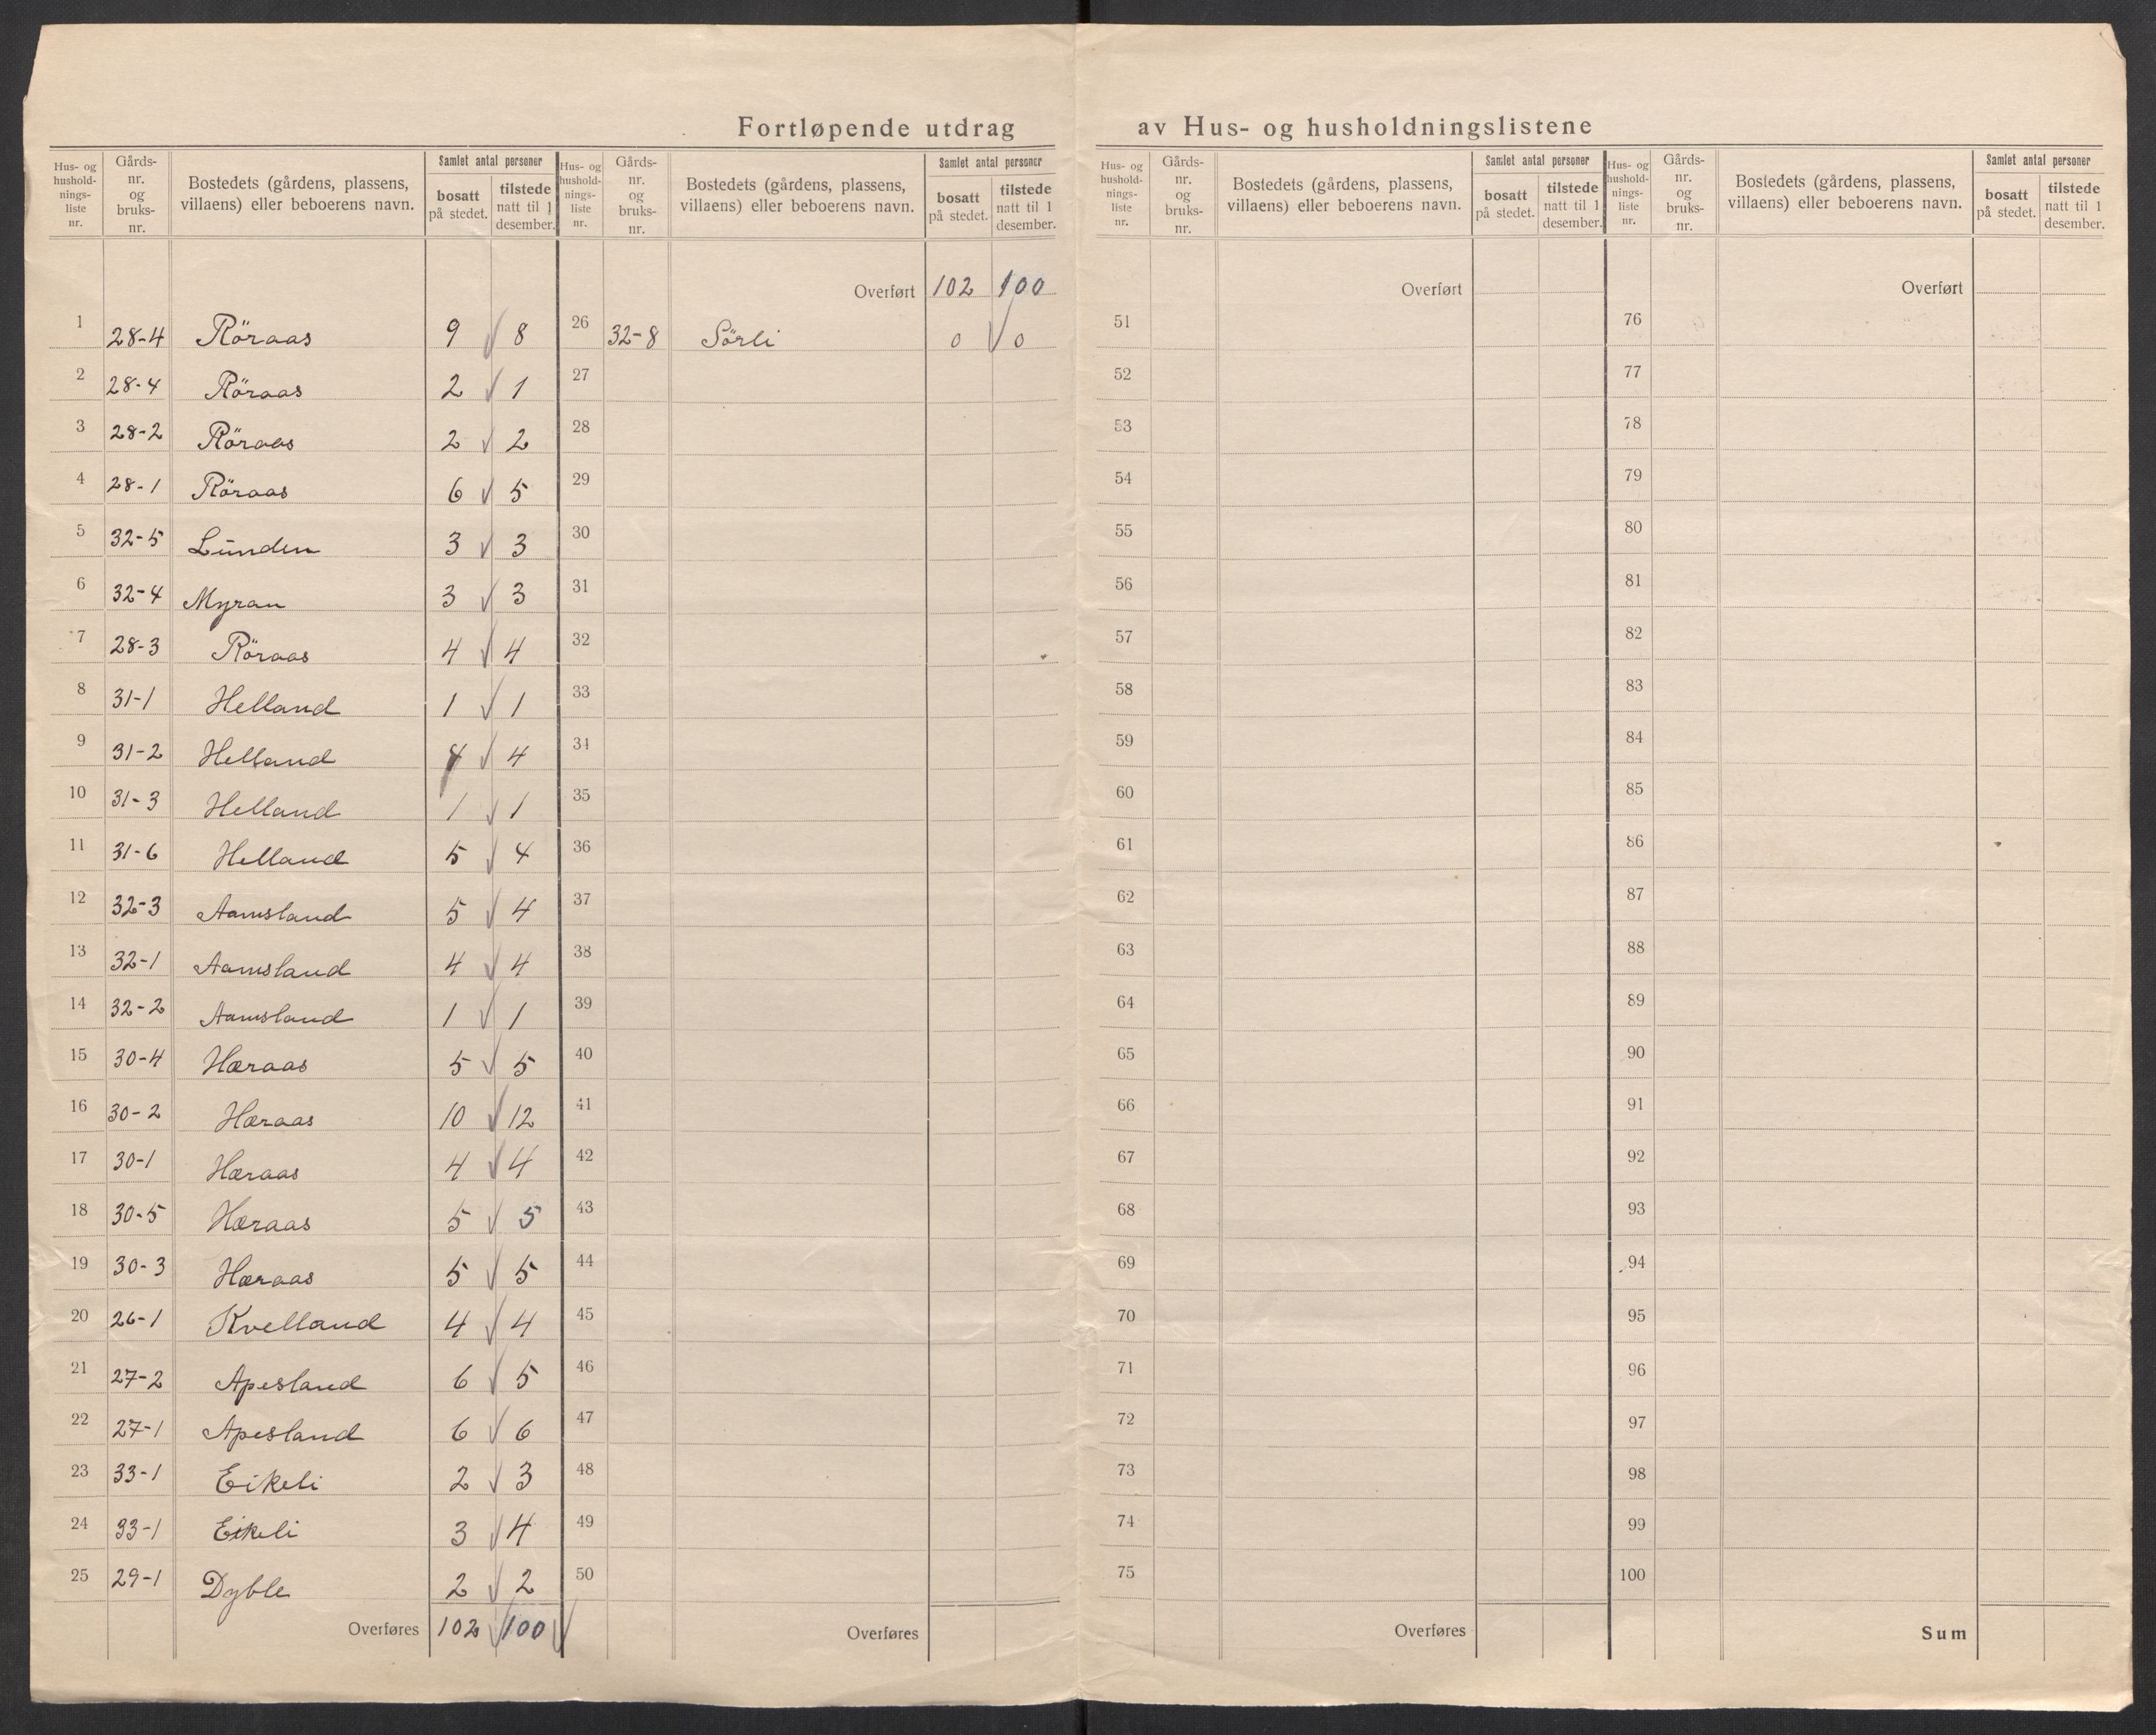 Fortløpende utdrag av Hus- og husholdningslistene
Hus- og husholdnings-liste nr. | Gårds-nr. og bruks-nr. | Bostedets (gårdens, plassens, villaens) eller beboerens navn. | Samlet antal personer | bosatt på stedet. | tilstede natt til 1 desember.
1 28-4 Röraas 9 8
2 28-4 Röraas 2 1
3 28-2 Röraas 2 2
4 28-1 Röraas 6 5
5 32-5 Lunden 3 3
6 32-4 Myran 3 3
7 28-3 Röraas 4 4
8 31-1 Helland 1 1
9 31-2 Helland 4 4
10 31-3 Helland 1 1
11 31-6 Helland 5 4
12 32-3 Aamsland 5 4
13 32-1 Aamsland 4 4
14 32-2 Aamsland 1 1
15 30-4 Hæraas 5 5
16 30-2 Hæraas 10 12
17 30-1 Hæraas 4 4
18 30-5 Hæraas 5 5
19 30-3 Hæraas 5 5
20 26-1 Kvelland 4 4
21 27-2 Apesland 6 5
22 27-1 Apesland 6 6
23 33-1 Eikeli 2 3
24 33-1 Eikeli 3 4
25 29-1 Dyble 2 2
Overføres 102 100
Hus- og husholdnings-liste nr. | Gårds-nr. og bruks-nr. | Bostedets (gårdens, plassens, villaens) eller beboerens navn. | Samlet antal personer | bosatt på stedet. | tilstede natt til 1 desember.
Overført 102 100
26 32-8 Sörli 0 0
27
28
29
30
31
32
33
34
35
36
37
38
39
40
41
42
43
44
45
46
47
48
49
50
Overføres
Hus- og husholdnings-liste nr. | Gårds-nr. og bruks-nr. | Bostedets (gårdens, plassens, villaens) eller beboerens navn. | Samlet antal personer | bosatt på stedet. | tilstede natt til 1 desember.
Overført
51
52
53
54
55
56
57
58
59
60
61
62
63
64
65
66
67
68
69
70
71
72
73
74
75
Overføres
Hus- og husholdnings-liste nr. | Gårds-nr. og bruks-nr. | Bostedets (gårdens, plassens, villaens) eller beboerens navn. | Samlet antal personer | bosatt på stedet. | tilstede natt til 1 desember.
Overført
76
77
78
79
80
81
82
83
84
85
86
87
88
89
90
91
92
93
94
95
96
97
98
99
100
Sum